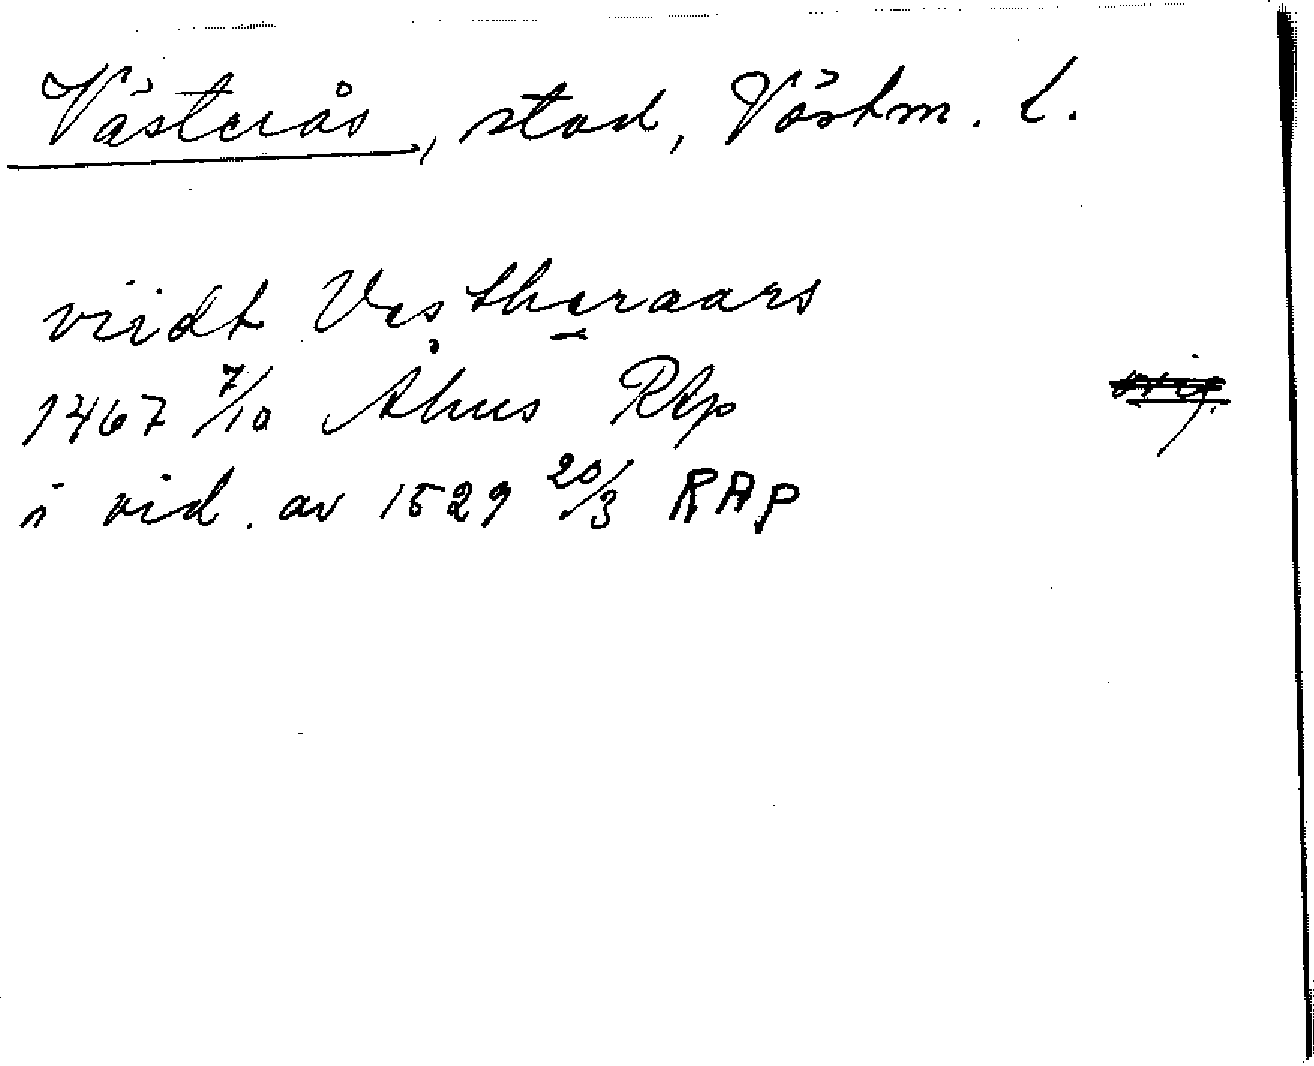 Västerås, stad, Västm. l.
viidt Vestheraars
1467 7/10 Åhus RAp
i vid. av 1529 20/3 RAp